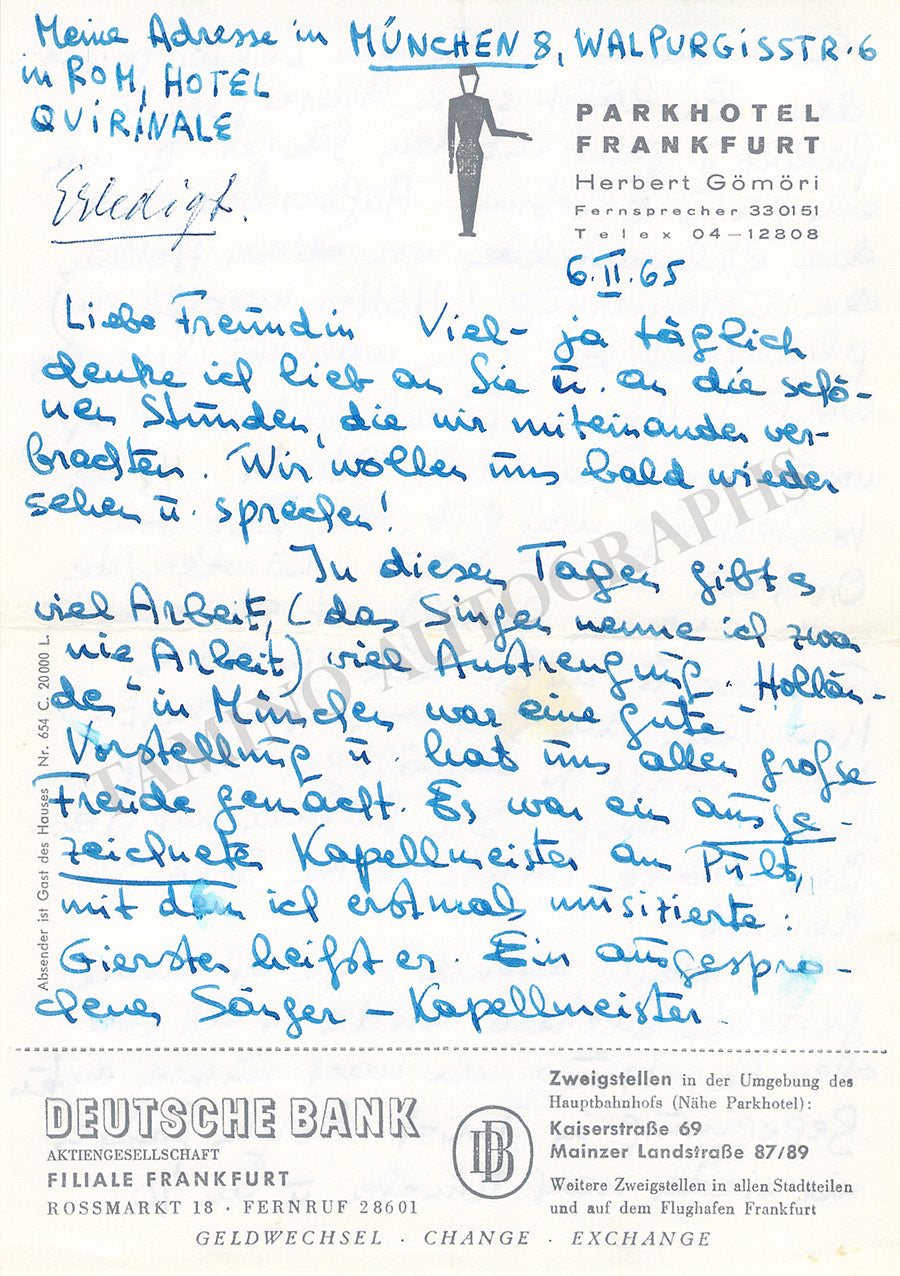 Meine Adresse in MÜNCHEN 8, WALPURGISSTR. 6
in ROM, HOTEL
QUIRINALE
Erledigt.
PARKHOTEL
FRANKFURT
Herbert Gömöri
Fernsprecher 330151
Telex 04—12808
6.II.65
Liebe Freundin Viel – ja täglich
denke ich lieb an Sie u. an die schö-
nen Stunden, die wir miteinander ver-
brachten. Wir wollen uns bald wieder
sehen u. sprechen!
In diesen Tagen gibt es
viel Arbeit, (das Singen nenne ich zwar
nie Arbeit) viel Anstrengung. "Hollän-
der" in München war eine gute
Vorstellung u. hat uns allen große
Freude gemacht. Es war ein ausge-
zeichneter Kapellmeister am Pult,
mit dem ich erstmals musizierte:
Gierster heißt er. Ein ausgespro-
chener Sänger – Kapellmeister.
Absender ist Gast des Hauses Nr. 654 C. 20000 L.
TAMINO AUTOGRAPHS
DEUTSCHE BANK
AKTIENGESELLSCHAFT
FILIALE FRANKFURT
ROSSMARKT 18 · FERNRUF 28601
DB
Zweigstellen in der Umgebung des
Hauptbahnhofs (Nähe Parkhotel):
Kaiserstraße 69
Mainzer Landstraße 87/89
Weitere Zweigstellen in allen Stadtteilen
und auf dem Flughafen Frankfurt
GELDWECHSEL · CHANGE · EXCHANGE